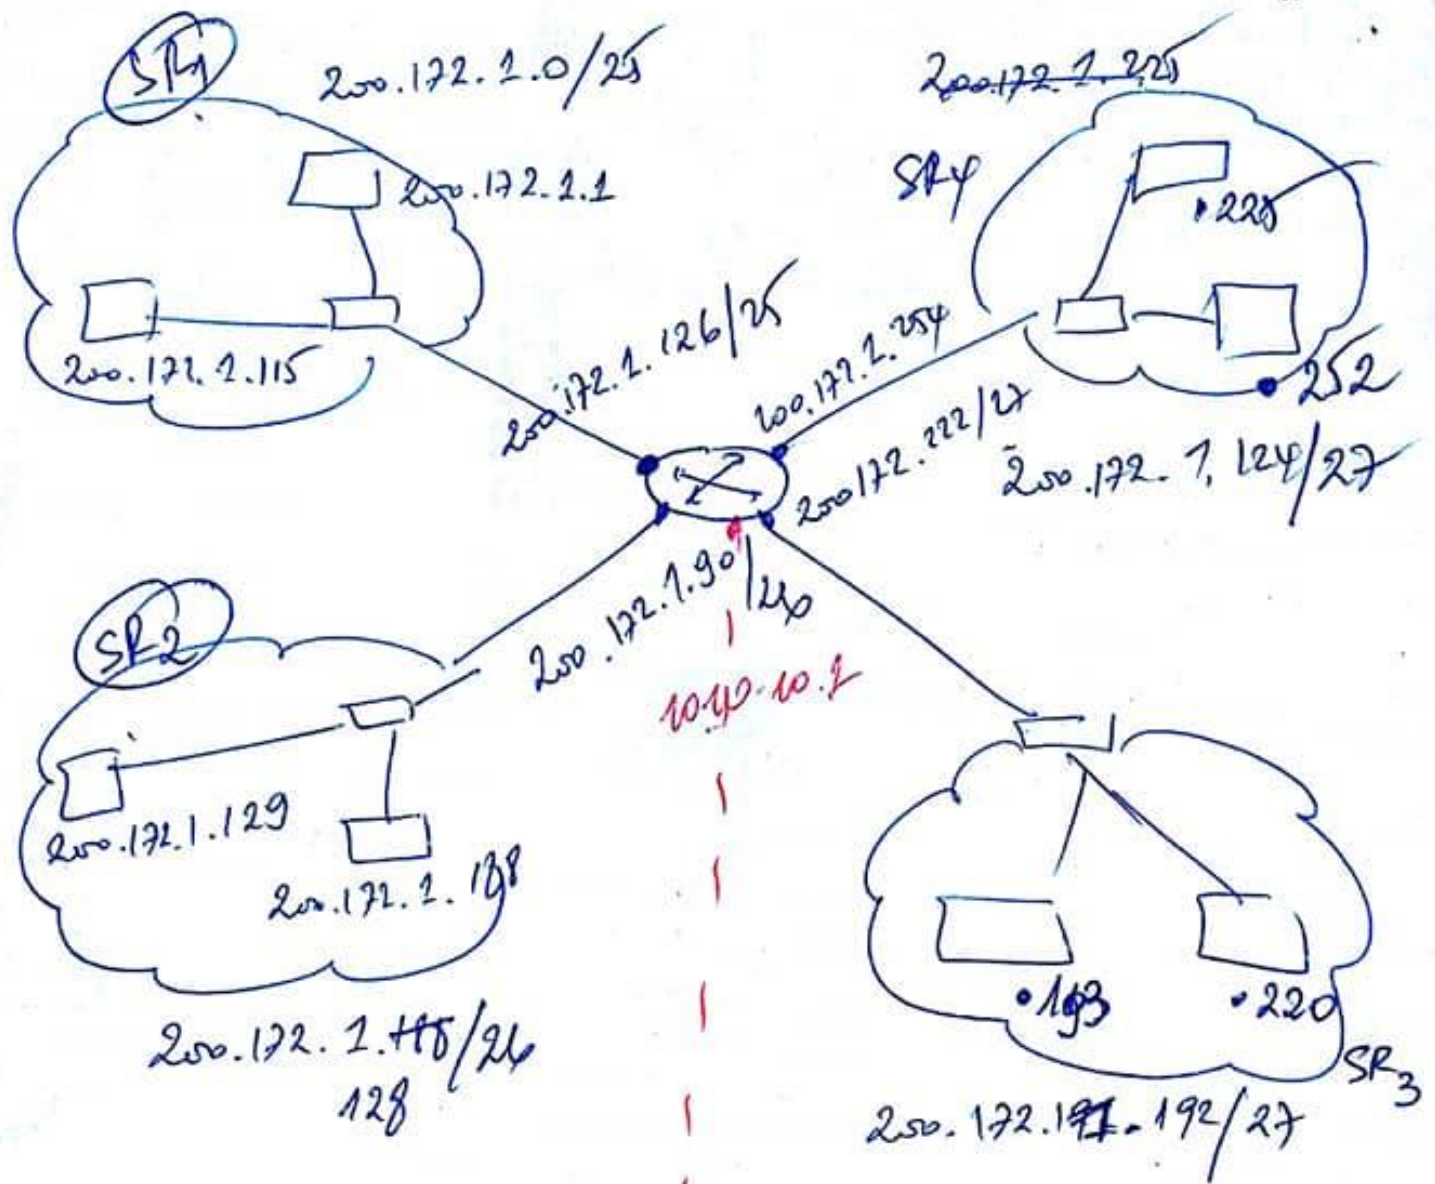 SR1
200.172.1.0/25
200.172.1.1
200.172.1.115
200.172.1.126/25
200.172.1.225
SR4
.225
.252
200.172.1.254
200.172.1.124/27
200.172.222/27
SR2
200.172.1.129
200.172.1.188
200.172.1.90/26
200.172.1. /26
128
10.10.10.1
.193
.220
SR3
200.172. .192/27